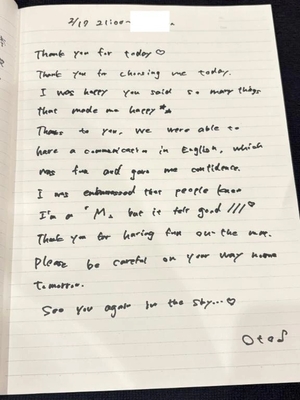 2/17 21:00~
Thank you for today♡
Thank you for choosing me today.
I was happy you said so many things
that made me happy
Thanks to you, we were able to
have a communication in English, which
was fun and gave me confidence.
I was embarrassed that people know
I'm a "M, but it felt good///♡
Thank you for having fun on the map.
Please be careful on your way home
tomorrow.
See you again in the sky...♡